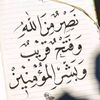 نَصْرٌ مِنَ اللهِ
وَفَتْحٌ قَرِيْبٌ
وَبَشِّرِ الْمُؤْمِنِيْنَ